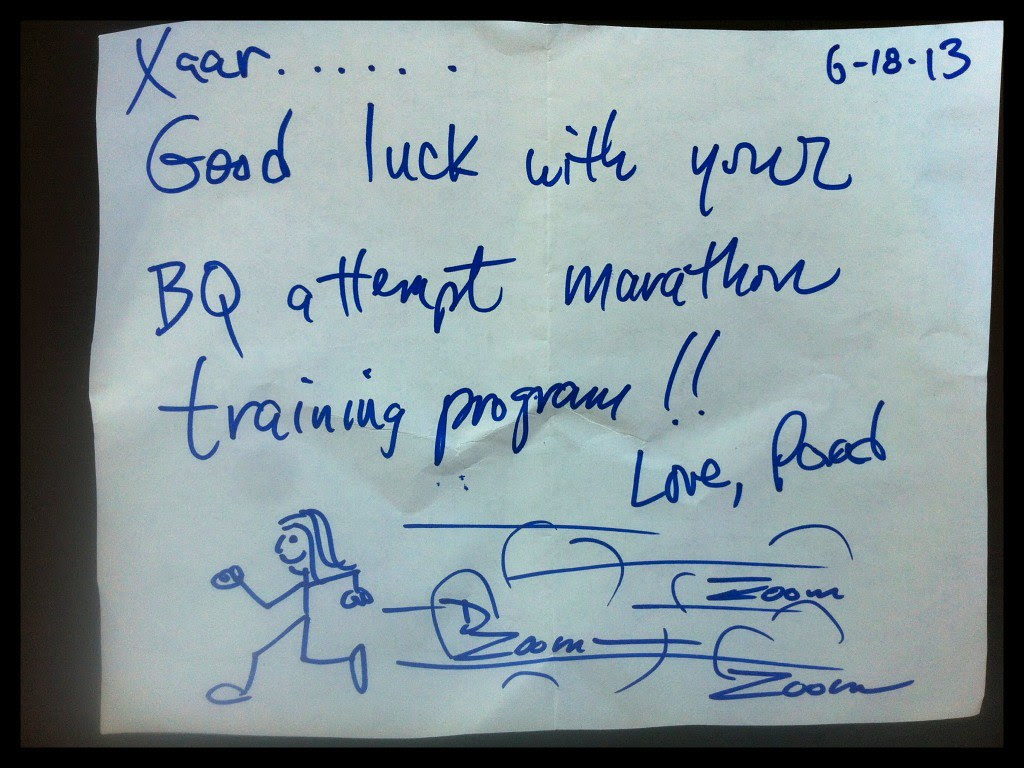 Xaar.......
6-18-13
Good luck with your
BQ attempt marathon
training program!!
Love,
Zoom
Zoom
Zoom